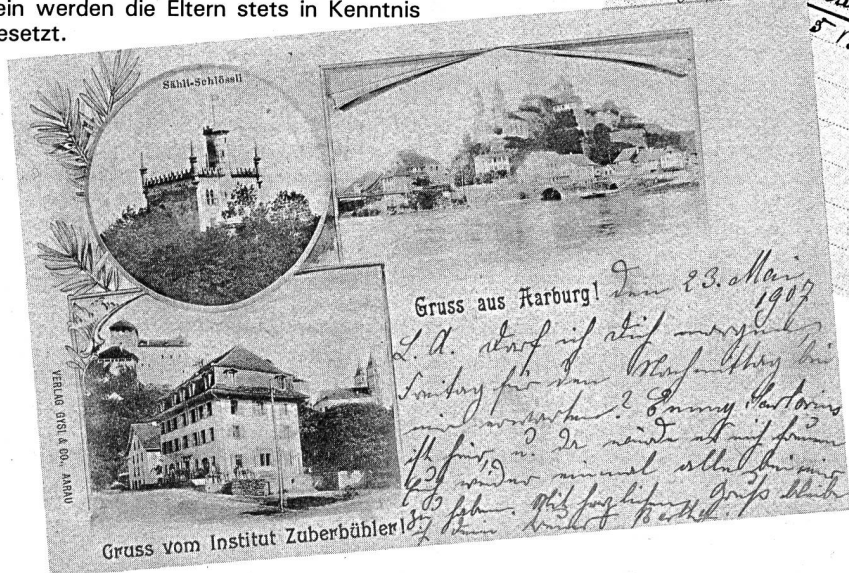 ein werden die Eltern stets in Kenntnis
esetzt.
Sähli-Schlössli
Gruss aus Aarburg! den 23. Mai
1907
L. A. Darf ich Dich morgen
Freitag für den Nachmittag bei
mir erwarten? Emmy Sartorius
ist hier u. da würde es mich freuen
Euch wieder einmal alle bei mir
zu haben. Mit herzlichem Gruß bleibe
ich Deine Bertha
VERLAG GYSI & CO., AARAU
Gruss vom Institut Zuberbühler!